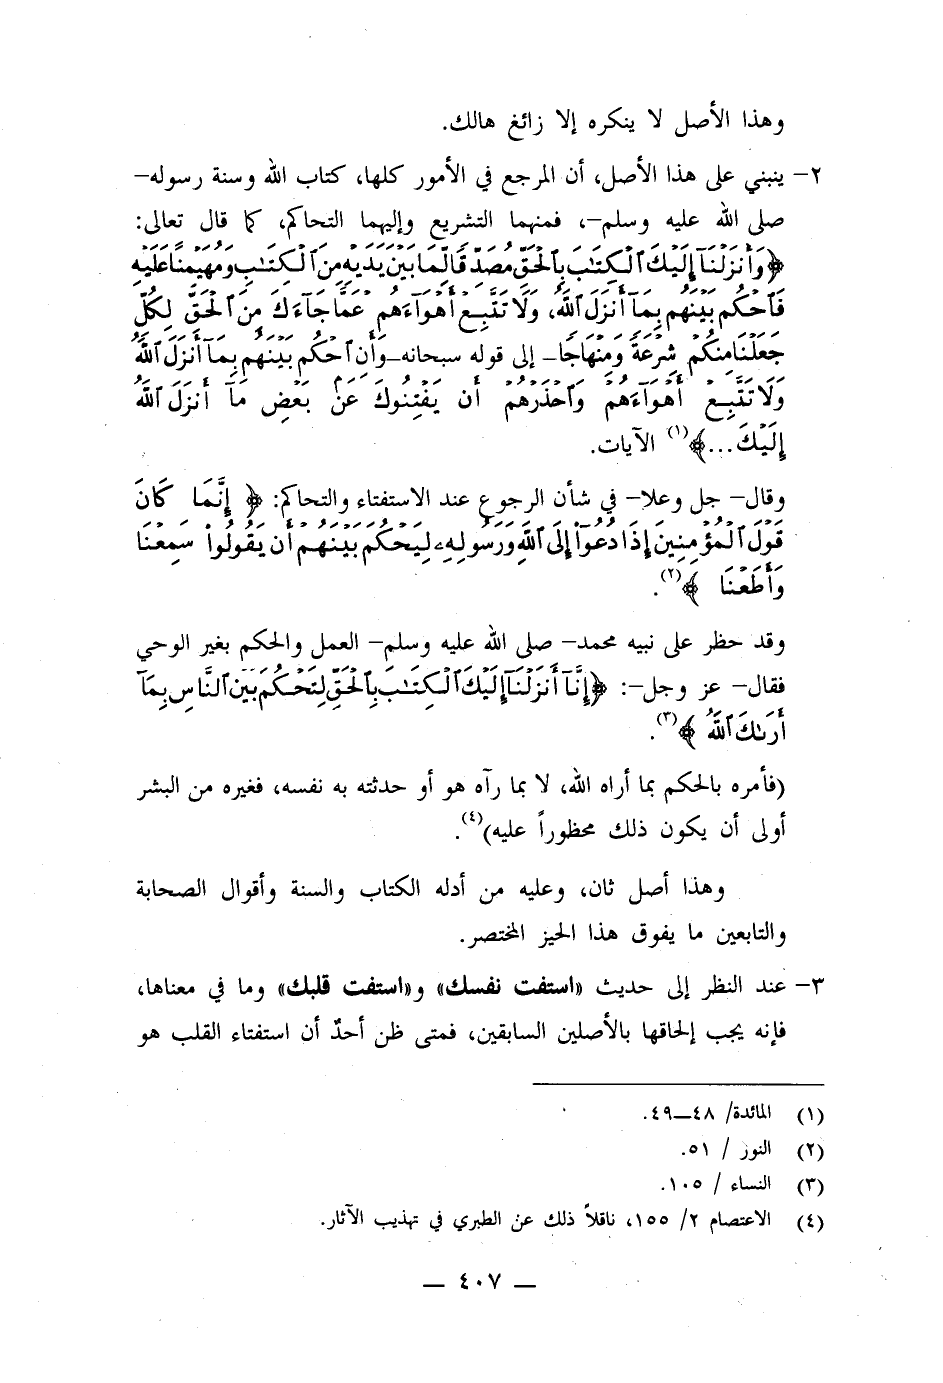 وهذا الأصل لا ينكره إلا زائغ هالك.
٢- ينبني على هذا الأصل، أن المرجع في الأمور كلها، كتاب الله وسنة رسوله-
صلى الله عليه وسلم-، فمنهما التشريع وإليهما التحاكم، كما قال تعالى:
﴿وَأَنزَلْنَآ إِلَيْكَ ٱلْكِتَٰبَ بِٱلْحَقِّ مُصَدِّقًا لِّمَا بَيْنَ يَدَيْهِ مِنَ ٱلْكِتَٰبِ وَمُهَيْمِنًا عَلَيْهِ
فَٱحْكُم بَيْنَهُم بِمَآ أَنزَلَ ٱللَّهُ، وَلَا تَتَّبِعْ أَهْوَآءَهُمْ عَمَّا جَآءَكَ مِنَ ٱلْحَقِّ لِكُلٍّ
جَعَلْنَا مِنكُمْ شِرْعَةً وَمِنْهَاجًا_ إلى قوله سبحانه_ وَأَنِ ٱحْكُم بَيْنَهُم بِمَآ أَنزَلَ ٱللَّهُ
وَلَا تَتَّبِعْ أَهْوَآءَهُمْ وَٱحْذَرْهُمْ أَن يَفْتِنُوكَ عَنْ بَعْضِ مَآ أَنزَلَ ٱللَّهُ
إِلَيْكَ...﴾(١) الآيات.
وقال- جل وعلا- في شأن الرجوع عند الاستفتاء والتحاكم: ﴿ إِنَّمَا كَانَ
قَوْلَ ٱلْمُؤْمِنِينَ إِذَا دُعُوٓا۟ إِلَى ٱللَّهِ وَرَسُولِهِۦ لِيَحْكُمَ بَيْنَهُمْ أَن يَقُولُوا۟ سَمِعْنَا
وَأَطَعْنَا ﴾(٢).
وقد حظر على نبيه محمد- صلى الله عليه وسلم- العمل والحكم بغير الوحي
فقال- عز وجل-: ﴿إِنَّآ أَنزَلْنَآ إِلَيْكَ ٱلْكِتَٰبَ بِٱلْحَقِّ لِتَحْكُمَ بَيْنَ ٱلنَّاسِ بِمَآ
أَرَىٰكَ ٱللَّهُ ﴾(٣).
(فأمره بالحكم بما أراه الله، لا بما رآه هو أو حدثته به نفسه، فغيره من البشر
أولى أن يكون ذلك محظوراً عليه)(٤).
وهذا أصل ثان، وعليه من أدله الكتاب والسنة وأقوال الصحابة
والتابعين ما يفوق هذا الحيز المختصر.
٣- عند النظر إلى حديث «استفت نفسك» و«استفت قلبك» وما في معناها،
فإنه يجب إلحاقها بالأصلين السابقين، فمتى ظن أحدٌ أن استفتاء القلب هو
(١) المائدة/ ٤٨_٤٩.
(٢) النور / ٥١.
(٣) النساء / ١٠٥.
(٤) الاعتصام ٢/ ١٥٥، ناقلاً ذلك عن الطبري في تهذيب الآثار.
_ ٤٠٧ _